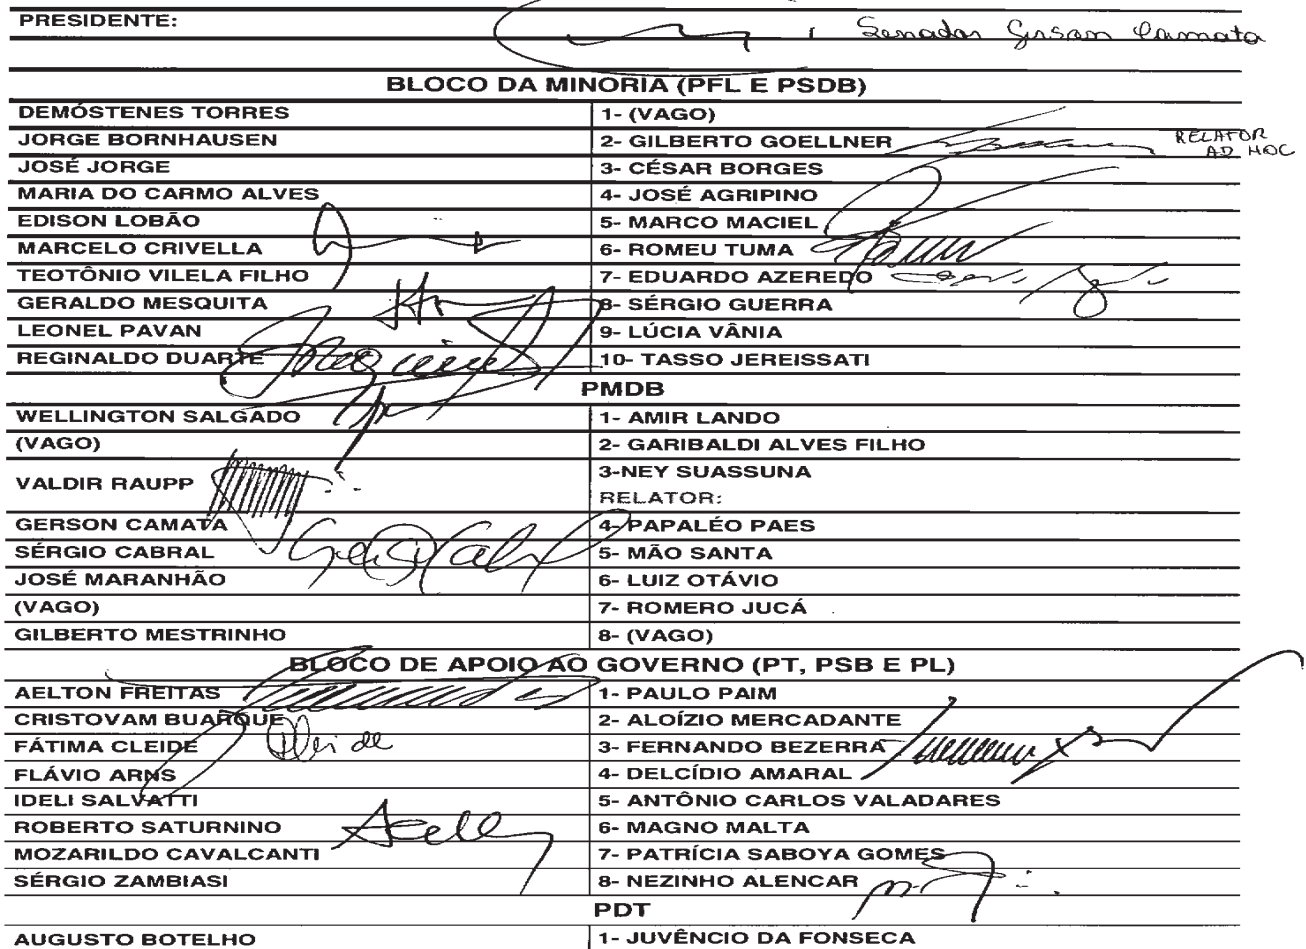 PRESIDENTE: Senador Gerson Camata
BLOCO DA MINORIA (PFL E PSDB)
DEMÓSTENES TORRES 1- (VAGO)
JORGE BORNHAUSEN 2- GILBERTO GOELLNER RELATOR AD HOC
JOSÉ JORGE 3- CÉSAR BORGES
MARIA DO CARMO ALVES 4- JOSÉ AGRIPINO
EDISON LOBÃO 5- MARCO MACIEL
MARCELO CRIVELLA 6- ROMEU TUMA
TEOTÔNIO VILELA FILHO 7- EDUARDO AZEREDO
GERALDO MESQUITA 8- SÉRGIO GUERRA
LEONEL PAVAN 9- LÚCIA VÂNIA
REGINALDO DUARTE 10- TASSO JEREISSATI
PMDB
WELLINGTON SALGADO 1- AMIR LANDO
(VAGO) 2- GARIBALDI ALVES FILHO
VALDIR RAUPP 3-NEY SUASSUNA
RELATOR:
GERSON CAMATA 4- PAPALÉO PAES
SÉRGIO CABRAL 5- MÃO SANTA
JOSÉ MARANHÃO 6- LUIZ OTÁVIO
(VAGO) 7- ROMERO JUCÁ
GILBERTO MESTRINHO 8- (VAGO)
BLOCO DE APOIO AO GOVERNO (PT, PSB E PL)
AELTON FREITAS 1- PAULO PAIM
CRISTOVAM BUARQUE 2- ALOÍZIO MERCADANTE
FÁTIMA CLEIDE 3- FERNANDO BEZERRA
FLÁVIO ARNS 4- DELCÍDIO AMARAL
IDELI SALVATTI 5- ANTÔNIO CARLOS VALADARES
ROBERTO SATURNINO 6- MAGNO MALTA
MOZARILDO CAVALCANTI 7- PATRÍCIA SABOYA GOMES
SÉRGIO ZAMBIASI 8- NEZINHO ALENCAR
PDT
AUGUSTO BOTELHO 1- JUVÊNCIO DA FONSECA